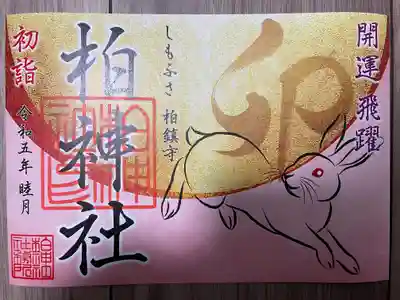 開運飛躍
卯
しもふさ 柏鎮守
柏神社
初詣
令和五年 睦月